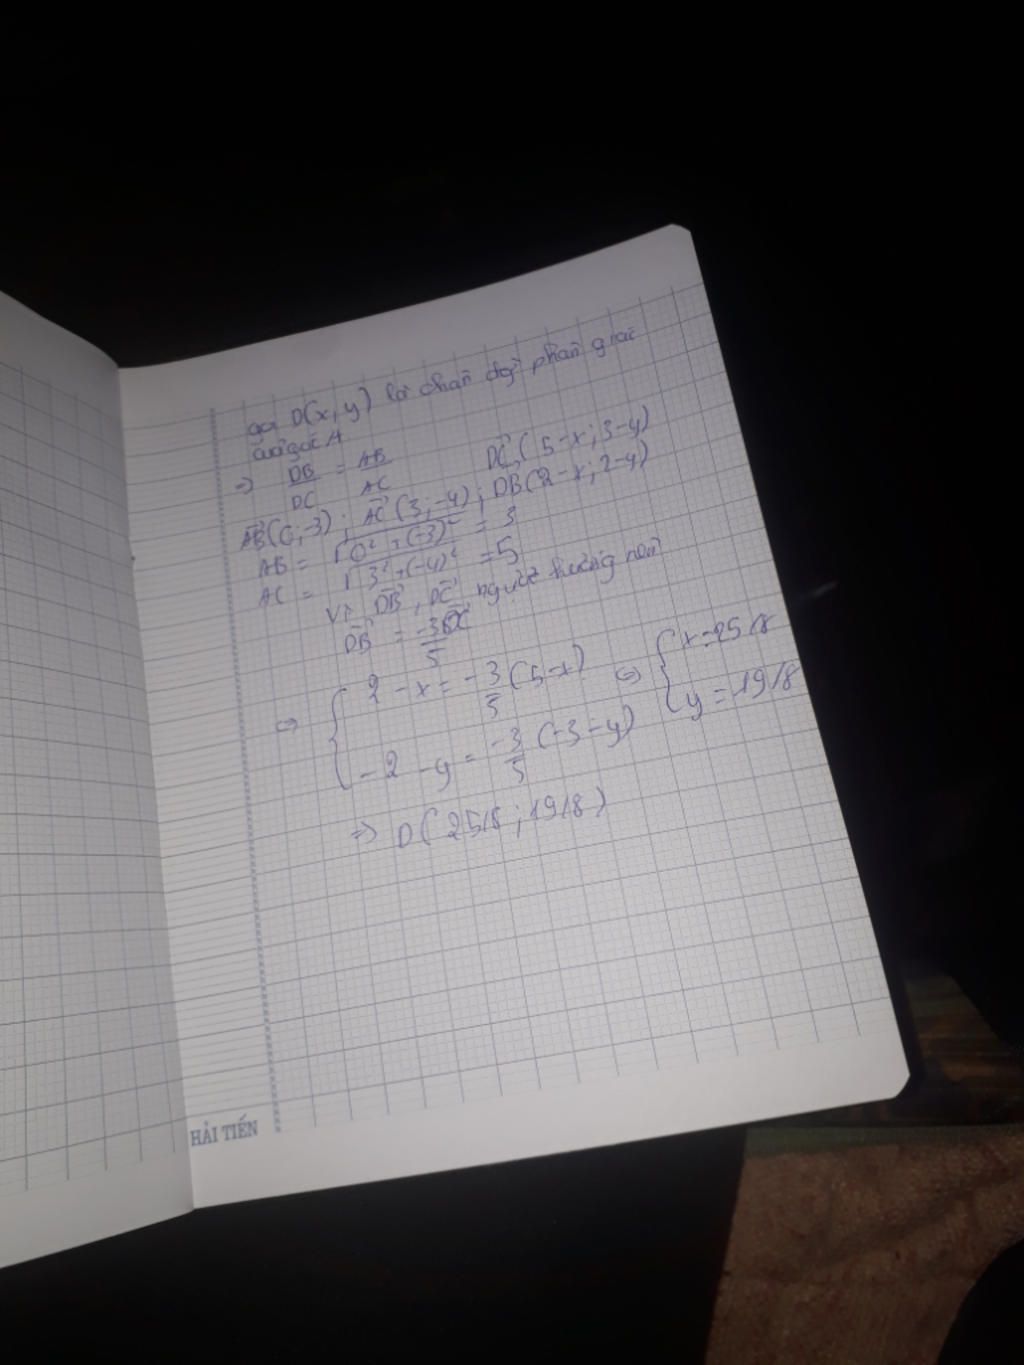 gọi D(x,y) là chân đg phân giác
của góc A
=> DB/DC = AB/AC
DC(5-x; 3-y)
AB(0;-3); AC(3;-4); DB(2-x; 2-y)
AB = √(0²+(-3)²) = 3
AC = √(3²+(-4)²) = 5
vì DB, DC ngược hướng nên
DB = -3/5 DC
<=> { 2-x = -3/5 (5-x) <=> { x=25/8
-2-y = -3/5 (-3-y) y=19/8
=> D(25/8; 19/8)
HẢI TIẾN